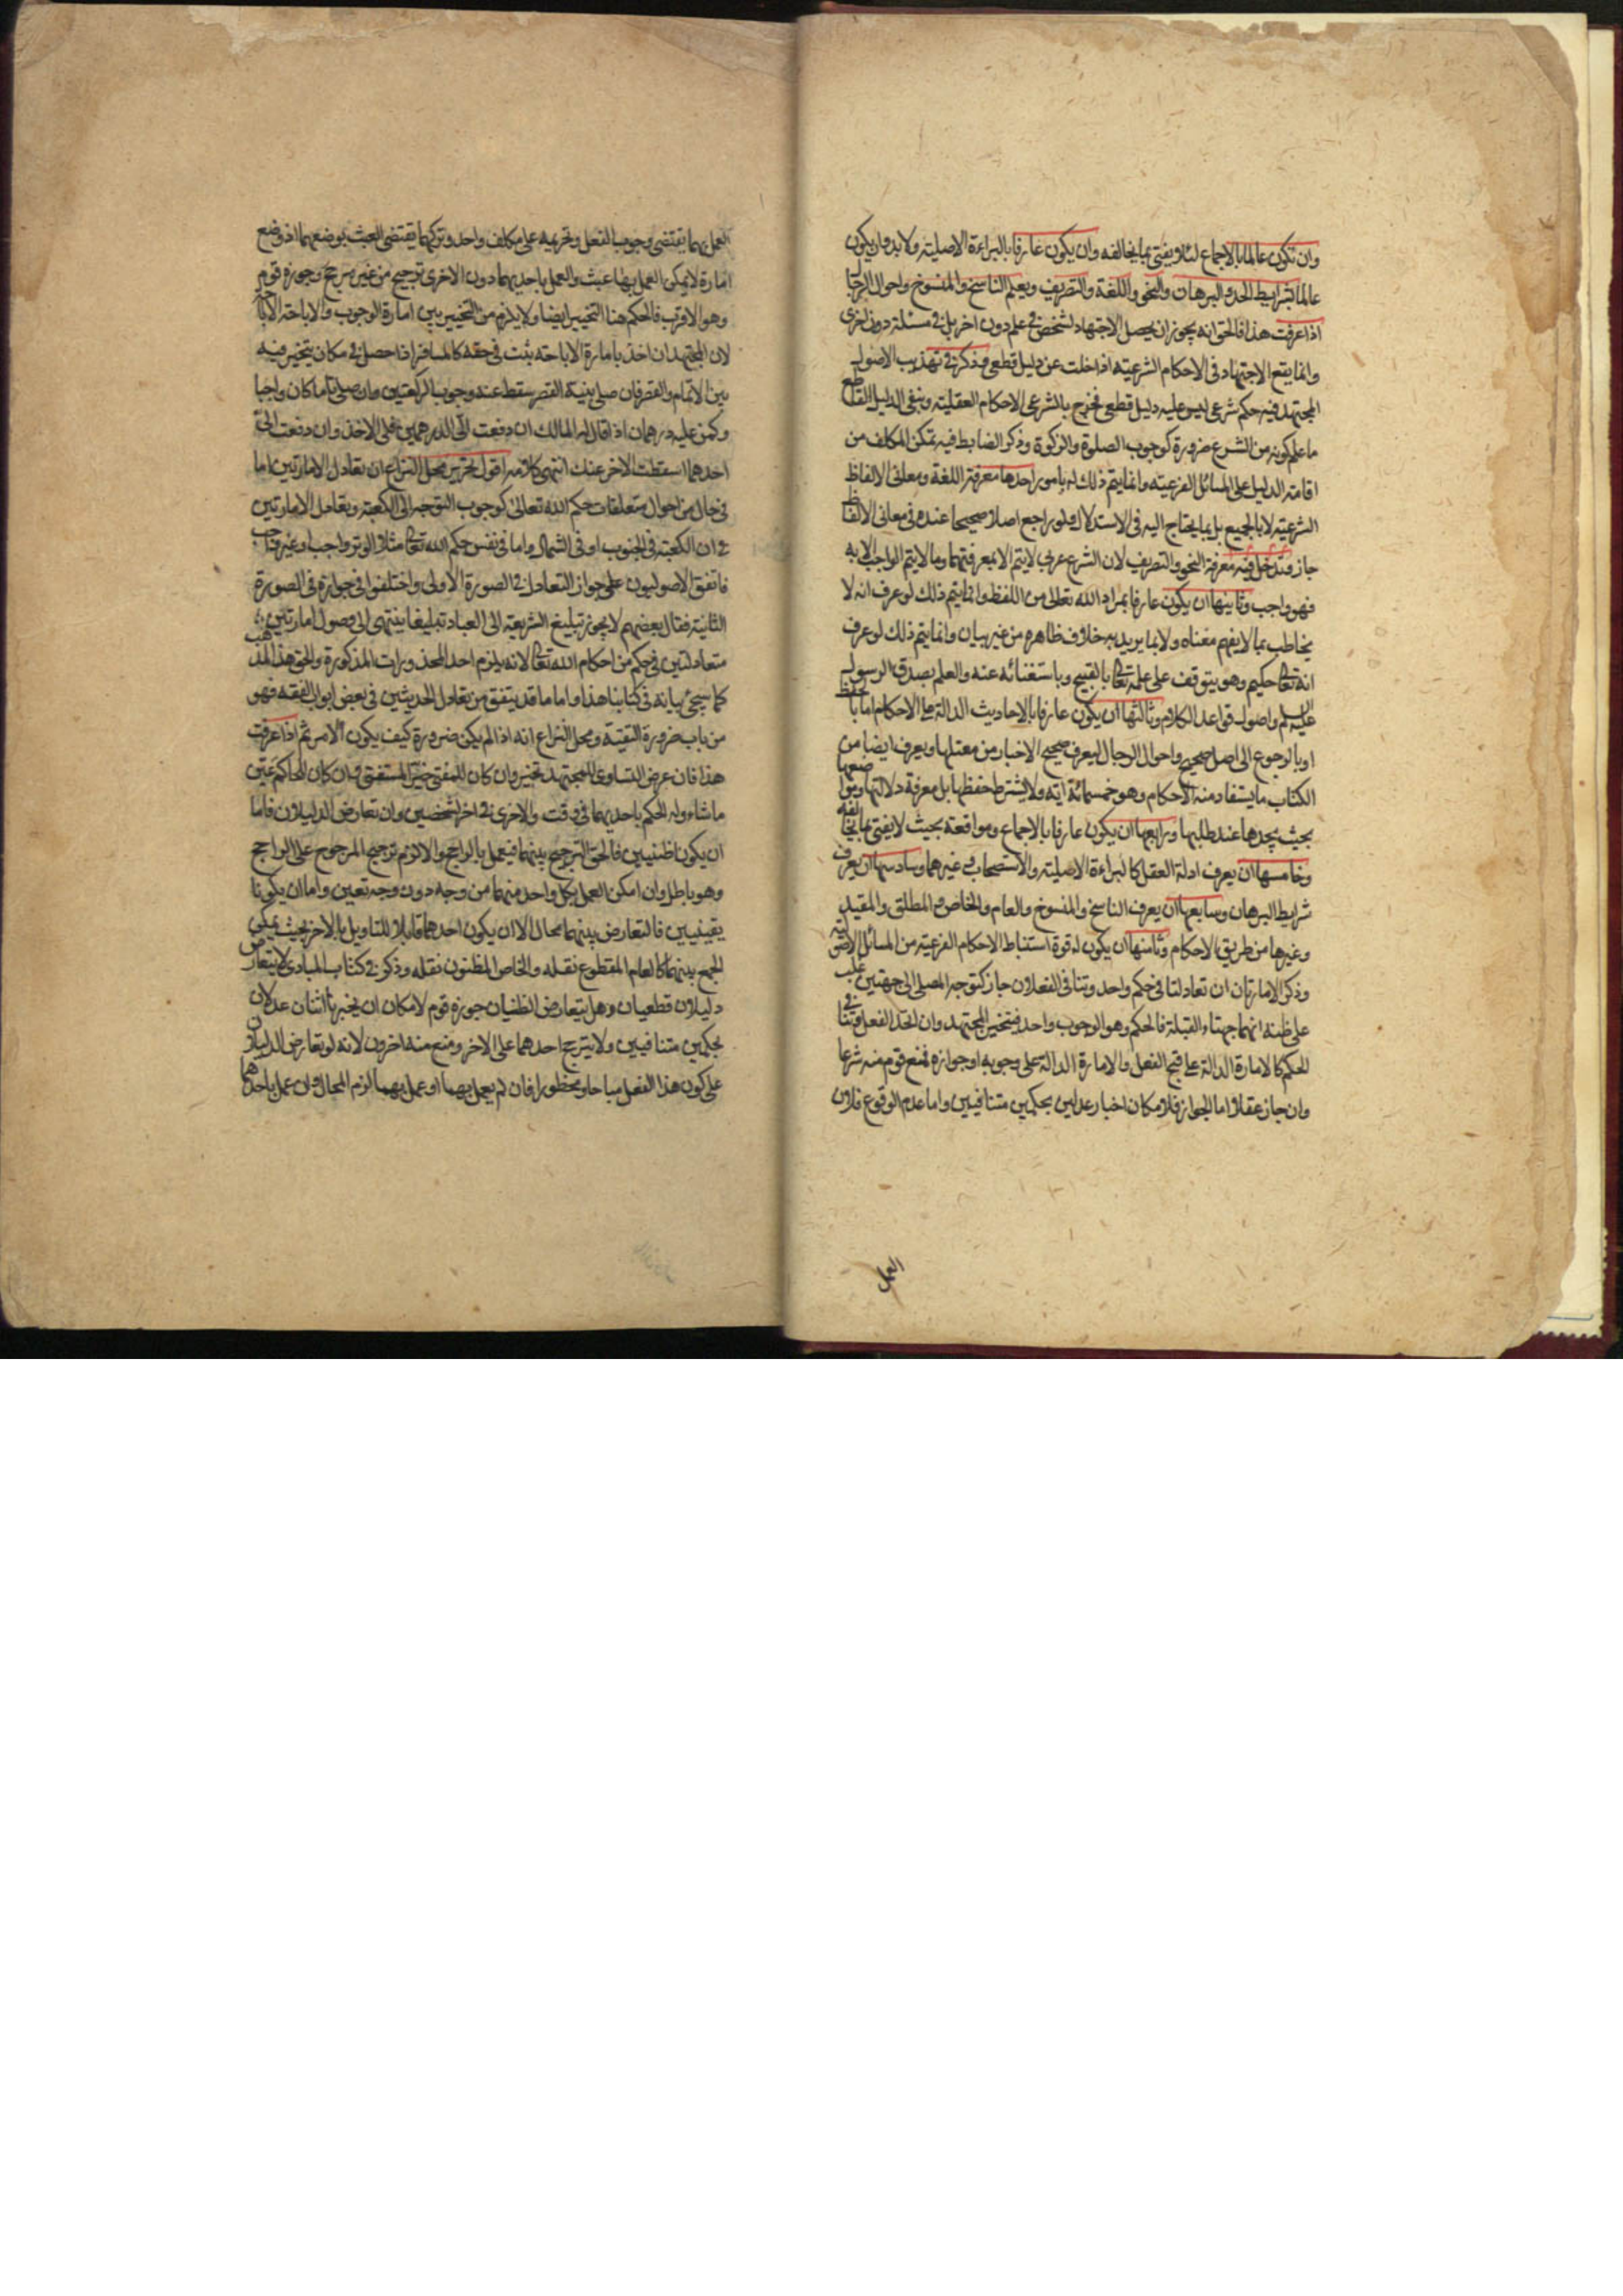 وان تكون عالما بالاجماع لئلا يفتى بما يخالفه وان يكون عارفا بالبراءة الاصلية ولا بد وان يكون
عالما بشرايط الحد والبرهان والنحو واللغة والتصريف ويعلم الناسخ والمنسوخ واحوال الرجال
اذا عرفت هذا فالحق انه يجوز ان يحصل الاجتهاد لشخص فى علم دون اخر بل فى مسئلة دون اخرى
وانما يقع الاجتهاد فى الاحكام الشرعية اذا خلت عن دليل قطعى وذكر فى تهذيب الاصول
المجتهد فيه حكم شرعى ليس عليه دليل قطعى فخرج بالشرعى الاحكام العقلية وبنفى الدليل القاطع
ما علم كونه من الشرع ضرورة كوجوب الصلوة والزكوة وذكر الضابط فيه تمكن المكلف من
اقامة الدليل على المسائل الفرعية وانما يتم ذلك له بامور احدها معرفة اللغة ومعانى الالفاظ
الشرعية لا بالجميع بل بما يحتاج اليه فى الاستدلال ولو راجع اصلا صحيحا عنده فى معانى الالفاظ
جاز وتدخل فيه معرفة النحو والتصريف لان الشرع عربى لا يتم الا بمعرفتهما وما لا يتم الواجب الا به
فهو واجب وثانيها ان يكون عارفا بمراد الله تعالى من اللفظ وانما يتم ذلك لو عرف انه لا
يخاطب بما لا يفهم معناه ولا بما يريد به خلاف ظاهره من غير بيان وانما يتم ذلك لو عرف
انه تعالى حكيم وهو يتوقف على علمه تعالى بالقبيح وباستغنائه عنه والعلم بصدق الرسول
عليه السلم واصول قواعد الكلام وثالثها ان يكون عارفا بالاحاديث الدالة على الاحكام اما بالحفظ
او بالرجوع الى اصل صحيح واحوال الرجال ليعرف صحيح الاخبار من معتلها ويعرف ايضا من
الكتاب ما يستفاد منه الاحكام وهو خمسمائة اية ولا يشترط حفظها بل معرفة دلالتها ومواضعها
بحيث يجدها عند طلبها ورابعها ان يكون عارفا بالاجماع ومواقعه بحيث لا يفتى بما يخالفه
وخامسها ان يعرف ادلة العقل كالبراءة الاصلية والاستصحاب فى غيرهما وسادسها ان يعرف
شرايط البرهان وسابعها ان يعرف الناسخ والمنسوخ والعام والخاص والمطلق والمقيد
وغيرها من طريق الاحكام وثامنها ان يكون له قوة استنباط الاحكام الفرعية من المسائل الاصولية
وذكر الامارتان ان تعادلتا فى حكم واحد وتنافى الفعلان جاز كتوجه المصلى الى جهتين غلب
على ظنه انهما جهتا القبلة فالحكم وهو الوجوب واحد فيتخير المجتهد وان اتحد الفعل وتنافى
الحكم كالامارة الدالة على قبح الفعل والامارة الدالة على وجوبه او جوازه فمنع قوم منه شرعا
وان جاز عقلا اما الجواز فلامكان اخبار عدلين بحكمين متنافيين واما عدم الوقوع فلان
العمل
العمل بهما يقتضى وجوب الفعل وتحريمه على مكلف واحد وتركهما يقتضى العبث بوضعهما اذ وضع
امارة لا يمكن العمل بها عبث والعمل باحديهما دون الاخرى ترجيح من غير مرجح وجوزه قوم
وهو الاقرب فالحكم هنا التخيير ايضا ولا يلزم من التخيير بين امارة الوجوب والاباحة الاباحة
لان المجتهد ان اخذ بامارة الاباحة ثبت فى حقه كالمسافر اذا حصل فى مكان يتخير فيه
بين الاتمام والقصر فان صلى بنية القصر سقط عنه وجوب الركعتين وان صلى تاما كان واجبا
وكمن عليه درهمان اذا قال له المالك ان دفعت الى الدرهمين فلى الاخذ وان دفعت الى
احدهما اسقطت الاخر عنك انتهى كلامه اقول تحرير محل النزاع ان تعادل الامارتين اما
فى حال من احوال متعلقات حكم الله تعالى كوجوب التوجه الى الكعبة وتعادل الامارتين
فى ان الكعبة فى الجنوب او فى الشمال واما فى نفس حكم الله تعالى مثلا الوتر واجب او غير واجب
فاتفق الاصوليون على جواز التعادل فى الصورة الاولى واختلفوا فى جوازه فى الصورة
الثانية فقال بعضهم لا يجوز تبليغ الشريعة الى العباد تبليغا ينتهى الى وصول امارتين
متعادلتين فى حكم من احكام الله تعالى لانه يلزم احد المحذورات المذكورة والحق هذا المذهب
كما سيجئ بيانه فى كتابنا هذا واما ما قد يتفق من تعادل الحديثين فى بعض ابواب الفقه فهو
من باب ضرورة التقية ومحل النزاع انه اذا لم يكن ضرورة كيف يكون الامر ثم اذا عرفت
هذا فان عرض التساوى للمجتهد تخير وان كان للمفتى خير المستفتى وان كان للحاكم عين
ما شاء وله الحكم باحديهما فى وقت والاخرى فى اخر لشخصين وان تعارض الدليلان فاما
ان يكونا ظنيين فالحق الترجيح بينهما فيعمل بالراجح والا لزم ترجيح المرجوح على الراجح
وهو باطل وان امكن العمل بكل واحد منهما من وجه دون وجه تعين واما ان يكونا
يقينيين فالتعارض بينهما محال الا ان يكون احدهما قابلا للتاويل بالاخر بحيث يمكن
الجمع بينهما كالعام المقطوع نقله والخاص المظنون نقله وذكر فى كتاب المبادى لا يتعارض
دليلان قطعيان وهل يتعارض الظنيان جوزه قوم لامكان ان يخبرنا اثنان عدلان
بحكمين متنافيين ولا يترجح احدهما على الاخر ومنع منه اخرون لانه لو تعارض الدليلان
على كون هذا الفعل مباحا ومحظورا فان لم يعمل بهما او عمل بهما لزم المحال وان عمل باحدهما